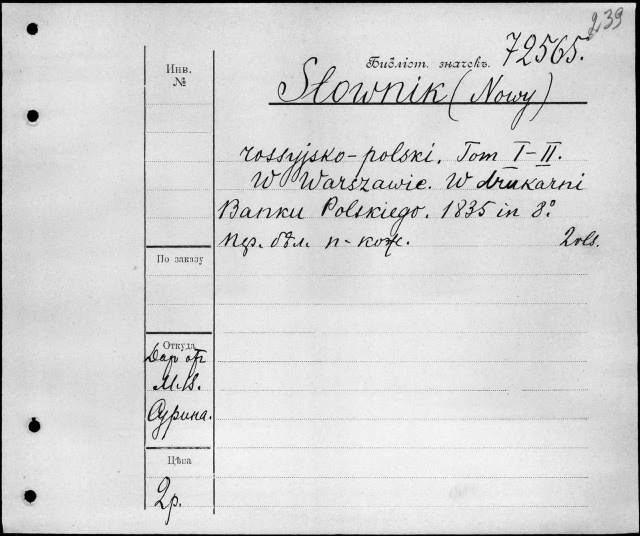 239
Библіот. значекъ. 72565.
Инв. №
Słownik (Nowy)
rossyjsko-polski. Tom I-II.
W Warszawie. W drukarni
Banku Polskiego. 1835 in 8º
пер. бѣл. п-кож. 2 vls.
По заказу
Откуда
Даръ от
М.В.
Сурина.
Цѣна
2р.